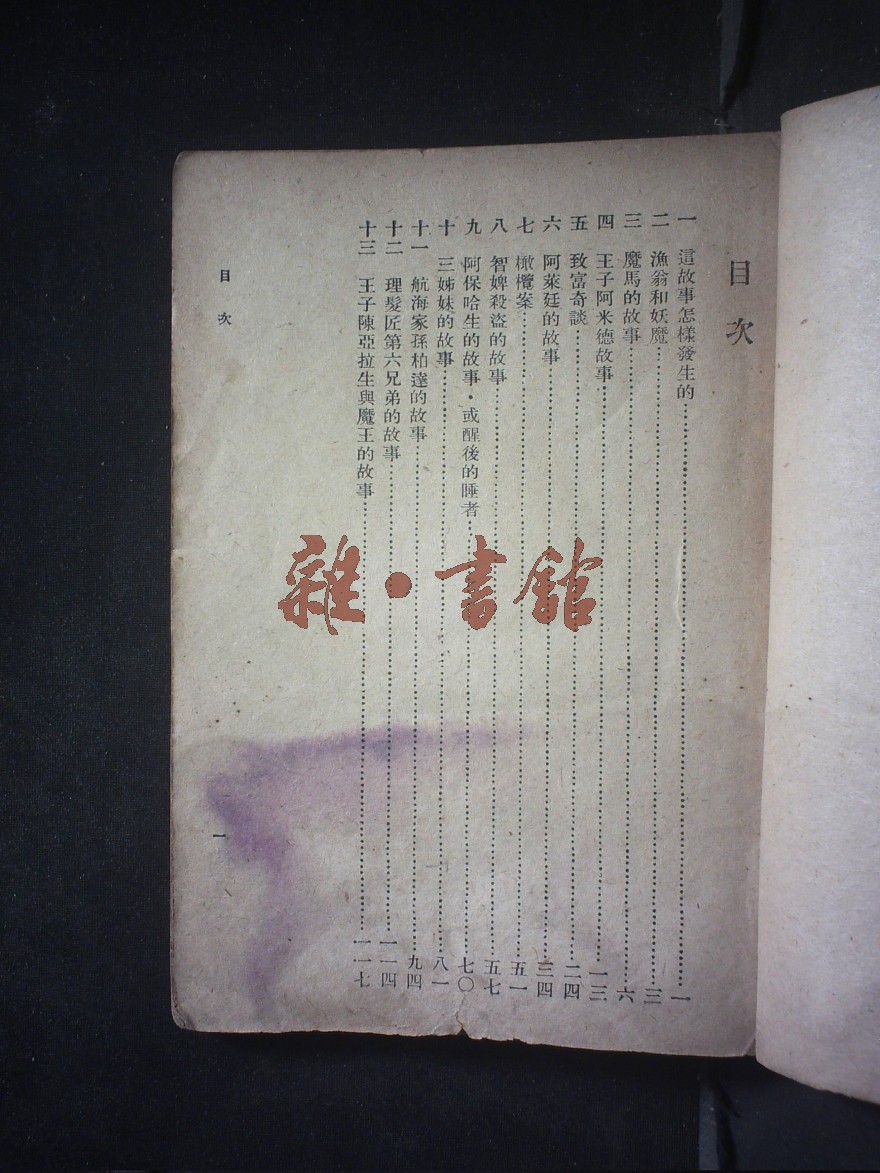 目次
一 這故事怎樣發生的……一
二 漁翁和妖魔……三
三 魔馬的故事……六
四 王子阿米德故事……一三
五 致富奇談……二四
六 阿萊廷的故事……三四
七 橄欖案……五一
八 智婢殺盜的故事……五七
九 阿保哈生的故事·或醒後的睡者……七〇
十 三姊妹的故事……八一
十一 航海家孫柏達的故事……九四
十二 理髮匠第六兄弟的故事……一一四
十三 王子陳亞拉生與魔王的故事……一一七
目次
一
雜·書館